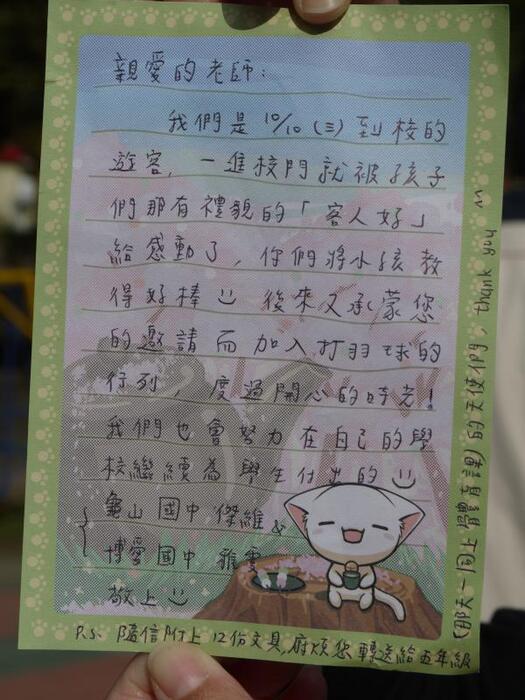 親愛的老師：
我們是 10/10 (三) 到校的
遊客，一進校門就被孩子
們那有禮貌的「客人好」
給感動了，你們將小孩教
得好棒 後來又承蒙您
的邀請而加入打羽球的
行列，度過開心的時光！
我們也會努力在自己的學
校繼續為學生付出的
龜山國中 傑維 &
博愛國中 雅雯
敬上
P.S. 隨信附上12份文具，麻煩您轉送給五年級
(那天一同上體育課)的天使們，thank you ~